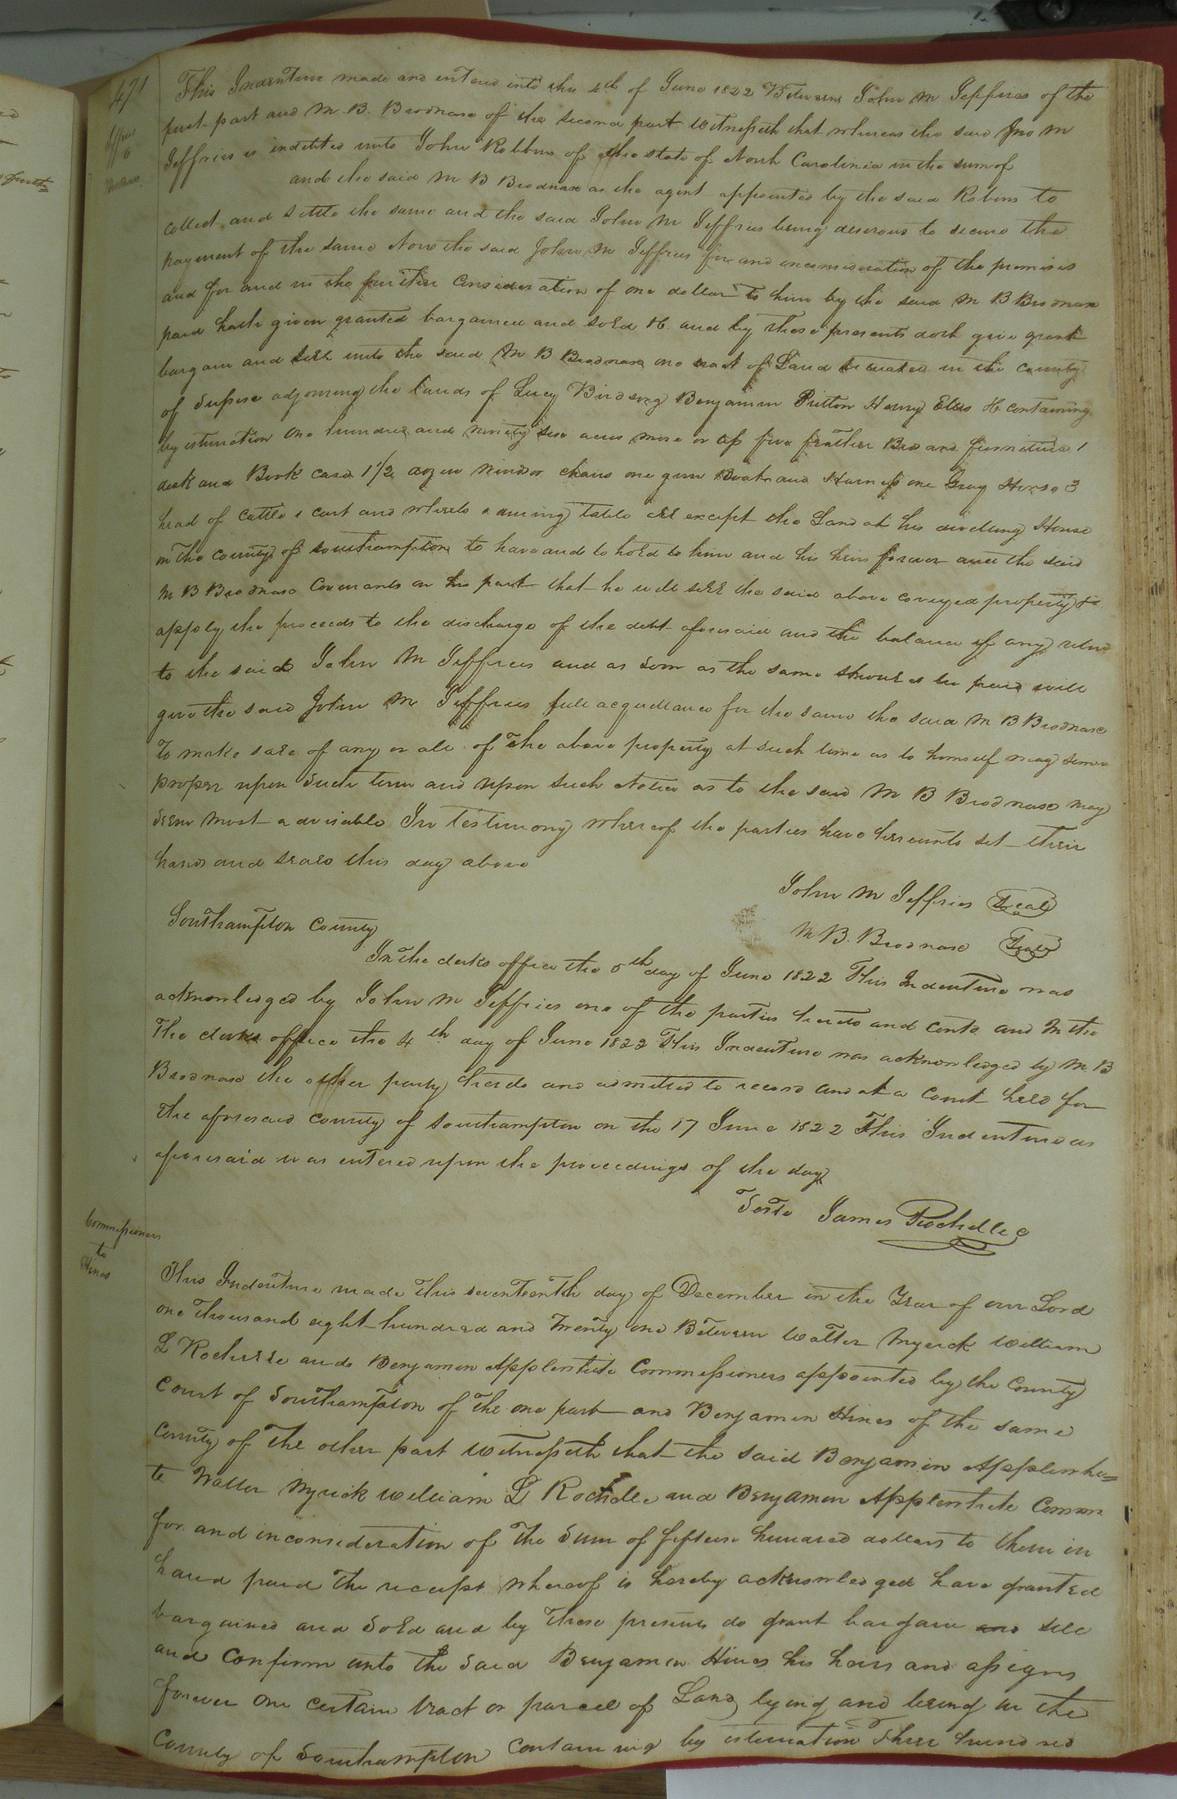 471
This Indenture made and entered into the 4th of June 1822 Between John M Jeffries of the
Jeffries
to
first part and M. B. Brodnax of the second part Witnesseth that whereas the said Jno M
Jeffries is indebted unto John Robbins of the state of North Carolinia in the sum of
and the said M B Brodnax as the agent appointed by the said Robins to
collect and settle the same and the said John M Jeffries being desirous to secure the
payment of the same Now the said John M Jeffries for and inconsideration of the premises
and for and in the further Consideration of one dollar to him by the said M B Brodnax
paid hath given granted bargained and sold & and by these presents doth give grant
bargain and sell unto the said M B Brodnax one tract of Land situated in the County
of Sussex adjoining the lands of Lucy Birdsong Benjamin Henry Ellis &c containing
by estimation One hundred and ninety acres more or less five feather Bed and furniture 1
desk and Book case 1 1/2 dozen Windsor chairs one gun and Harness one Gray Horse 3
head of cattle 1 cart and wheels 1 dining table all except the Land at his dwelling House
in the County of Southampton to have and to hold to him and his heirs forever and the said
M B Brodnax Covenants on his part that he will sell the said above conveyed property &
apply the proceeds to the discharge of the debt aforesaid and the balance if any
to the said John M Jeffries and as soon as the same should be paid will
give the said John M Jeffries full acquittance for the same the said M B Brodnax
To make sale of any or all of the above property at such time as to himself may seem
proper upon such term and upon such Notice as to the said M B Brodnax may
seem most advisable In Testimony whereof the parties have hereunto set their
hands and seals this day above
John M Jeffries Seal
M B. Brodnax Seal
Southampton County
In the clerks office the 5th day of June 1822 This Indenture was
acknowledged by John M Jeffries one of the parties hereto and and In the
The clerks office the 4th day of June 1822 This Indenture was acknowledged by M B
Brodnax the other party hereto and admitted to record and at a Court held for
the aforesaid County of Southampton on the 17 June 1822 This Indenture as
aforesaid was entered upon the proceedings of the day
Teste James Rochelle
Commissioners
to
Hines
This Indenture made this seventeenth day of December in the Year of our Lord
one Thousand eight hundred and Twenty one Between Walter Myrick William
L Rochelle and Benjamin Applewhite Commissioners appointed by the County
Court of Southampton of the one part and Benjamin Hines of the same
County of The other part Witnesseth that the said Benjamin Applewhi=
te Walter Myrick William L Rochelle and Benjamin Applewhite
for and inconsideration of The Sum of fifteen hundred dollars to them in
hand paid The receipt whereof is hereby acknowledged have granted
bargained and Sold and by These presents do grant bargain and sell
and Confirm unto the Said Benjamin Hines his heirs and assigns
forever One certain tract or parcel of Land lying and being in the
County of Southampton Containing by estimation Three hundred